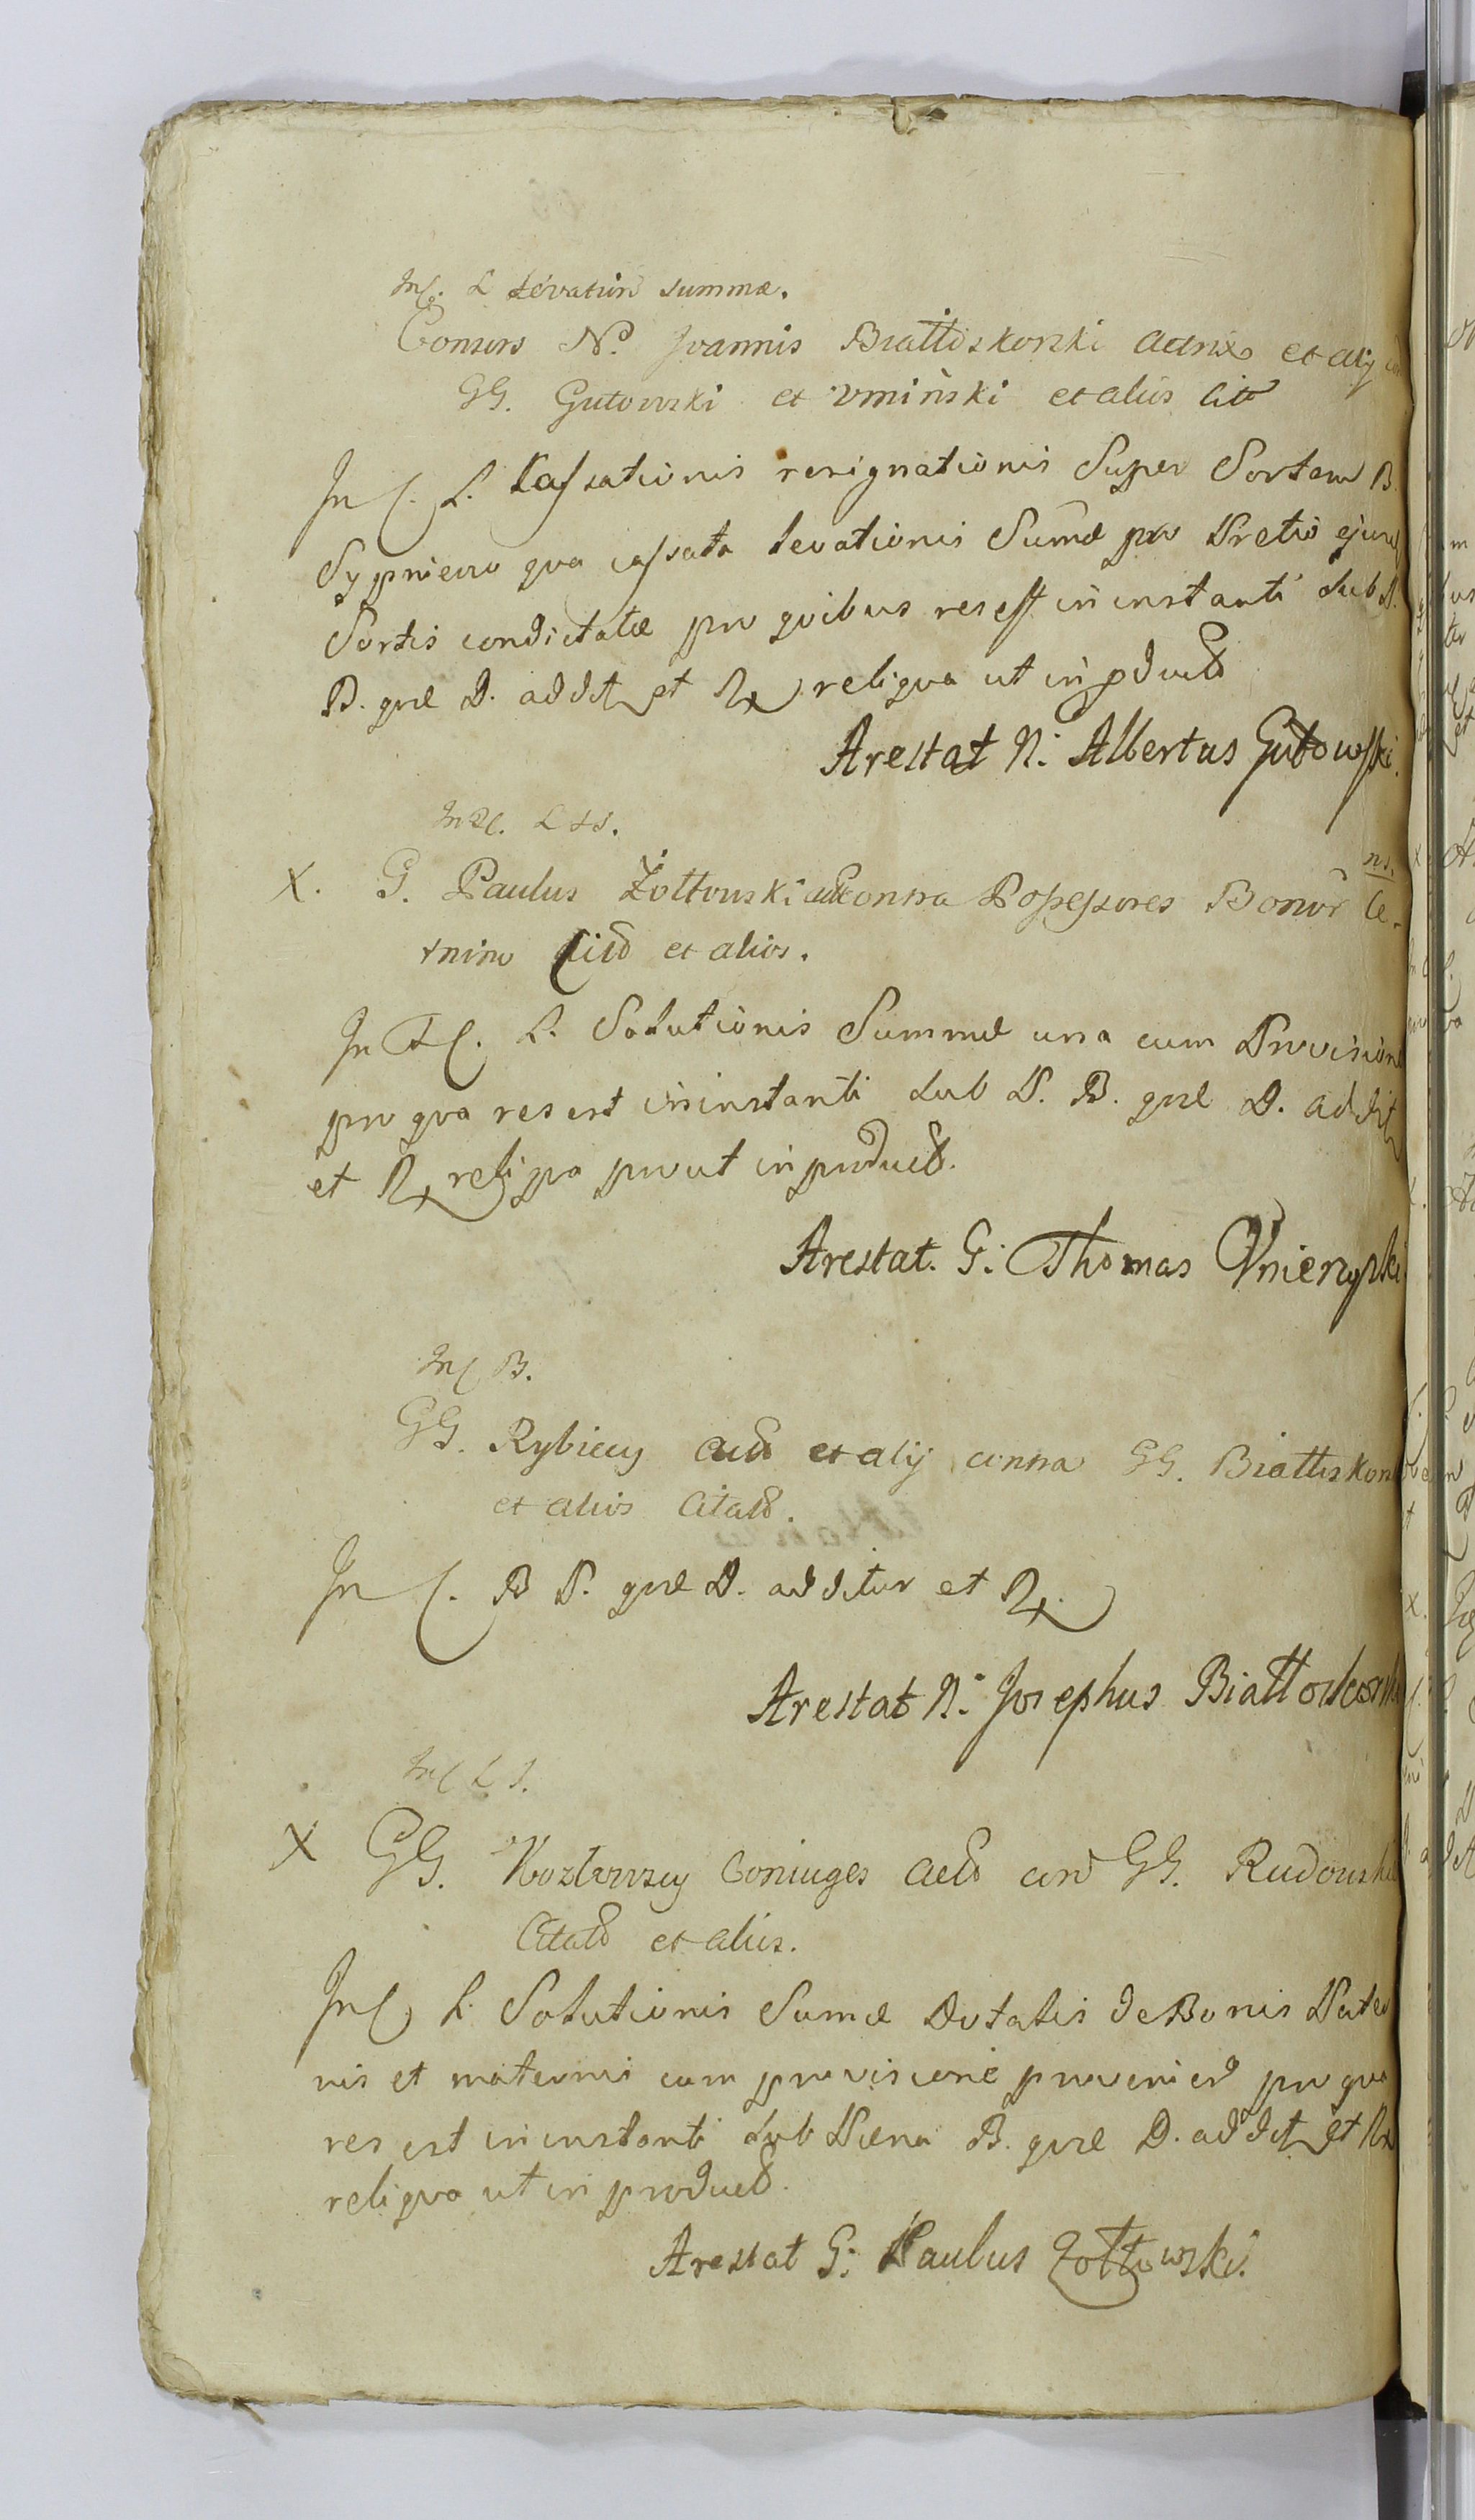 In C. L Levation summæ.
Consors N. Joannis Białłoskorski Actrix et alij
GG. Gutowski et Umiński et alios Cit
In C. L. Cassationis resignationis Super Sortem B.
Sypniewo qva cassata levationis Summæ pro Pretio ejusd
Sortis condictatæ pro qvibus res est in instanti Sub P.
B. qræ D. addit et Rx reliqva ut in pduct
Arestat N: Albertus Gutowski.
In C. L
X. G. Paulus Żółtowski contra Possessores Bonor Ce-
rnino Citd et alios.
In C. L. Solutionis Summæ una cum Provisione
pro qva res est in instanti Sub P. B. qræ D. addit
et Rx reliqva prout in product.
Arestat. G: Thomas Gnierzyski
In C B.
GG. Rybiccy Act et alij contra GG. Białłoskor
et alios Citatd.
In C. B P. qræ D. additur et Rx
Arestat N: Josephus Białłoskorski
In C L S.
X GG. Kozłowscy Coniuges Act con GG. Rudowski
Citatd et alios.
In C L. Solutionis Sumæ Dotalis de Bonis Pater
nis et maternis cum provisione provenien pro qva
res est in instanti Sub Pæna B. qræ D. addit et Rx
reliqva ut in product.
Arestat G: Paulus Zołtowski.